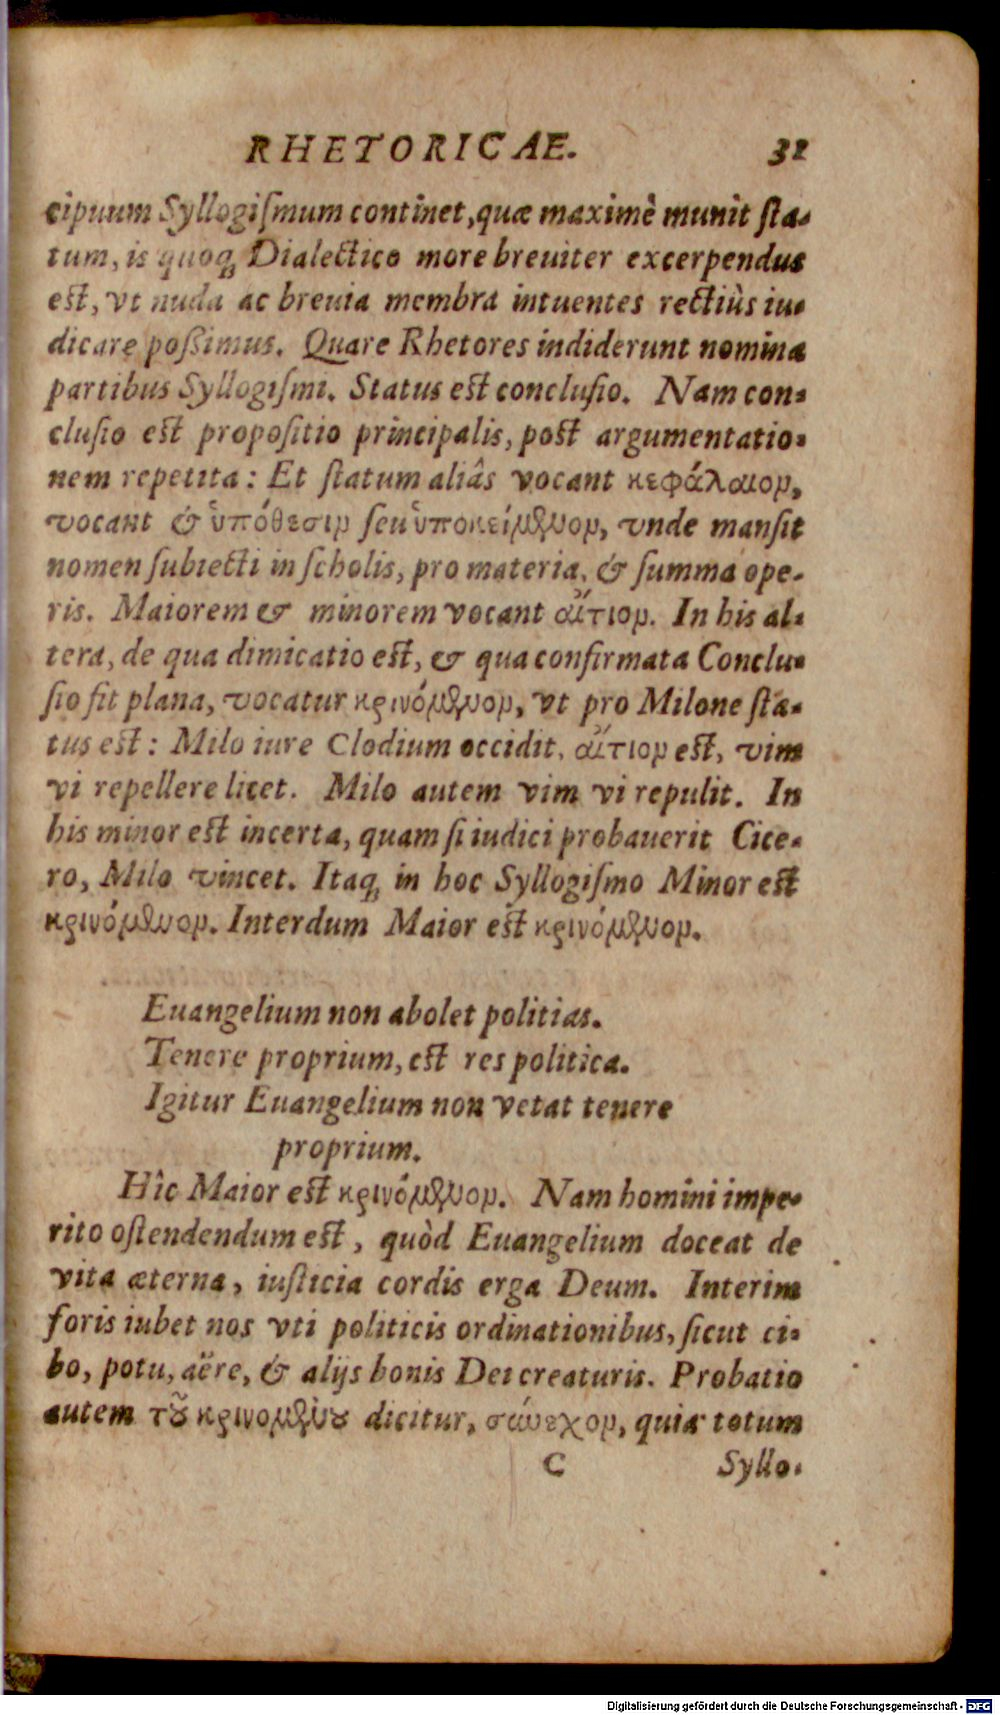 RHETORICAE. 31
cipuum Syllogiſmum continet, quæ maximè munit ſta-
tum, is quoq; Dialectico more breuiter excerpendus
est, vt nuda ac breuia membra intuentes rectiùs iu-
dicare poſſimus. Quare Rhetores indiderunt nomina
partibus Syllogiſmi. Status est concluſio. Nam con-
cluſio est propoſitio principalis, post argumentatio-
nem repetita: Et ſtatum aliâs vocant κεφάλαιον,
vocant & ὑπόθεσιν ſeu ὑποκείμενον, vnde manſit
nomen ſubiecti in ſcholis, pro materia, & ſumma ope-
ris. Maiorem & minorem vocant αἴτιον. In his al-
tera, de qua dimicatio est, & qua confirmata Conclu-
ſio fit plana, vocatur κρινόμενον, vt pro Milone ſta-
tus est: Milo iure Clodium occidit, αἴτιον est, vim
vi repellere licet. Milo autem vim vi repulit. In
his minor est incerta, quam ſi iudici probauerit Cice-
ro, Milo vincet. Itaq; in hoc Syllogiſmo Minor est
κρινόμενον. Interdum Maior est κρινόμενον.
Euangelium non abolet politias.
Tenere proprium, est res politica.
Igitur Euangelium non vetat tenere
proprium.
Hîc Maior est κρινόμενον. Nam homini impe-
rito oſtendendum est, quòd Euangelium doceat de
vita æterna, iuſticia cordis erga Deum. Interim
foris iubet nos vti politicis ordinationibus, ſicut ci-
bo, potu, aëre, & alijs bonis Dei creaturis. Probatio
autem τοῦ κρινομένου dicitur, σύνεχον, quia totum
C Syllo-
Digitalisierung gefördert durch die Deutsche Forschungsgemeinschaft - DFG